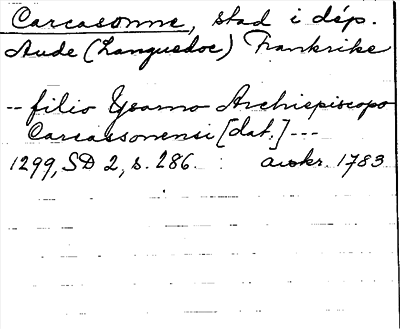 Carcasonne, stad i dép.
Aude (Languedoc) Frankrike
-- filio Ysarno Archiepiscopo
Carcassonensi [dat.] ---
1299, SD 2, s. 286. : avskr. 1783